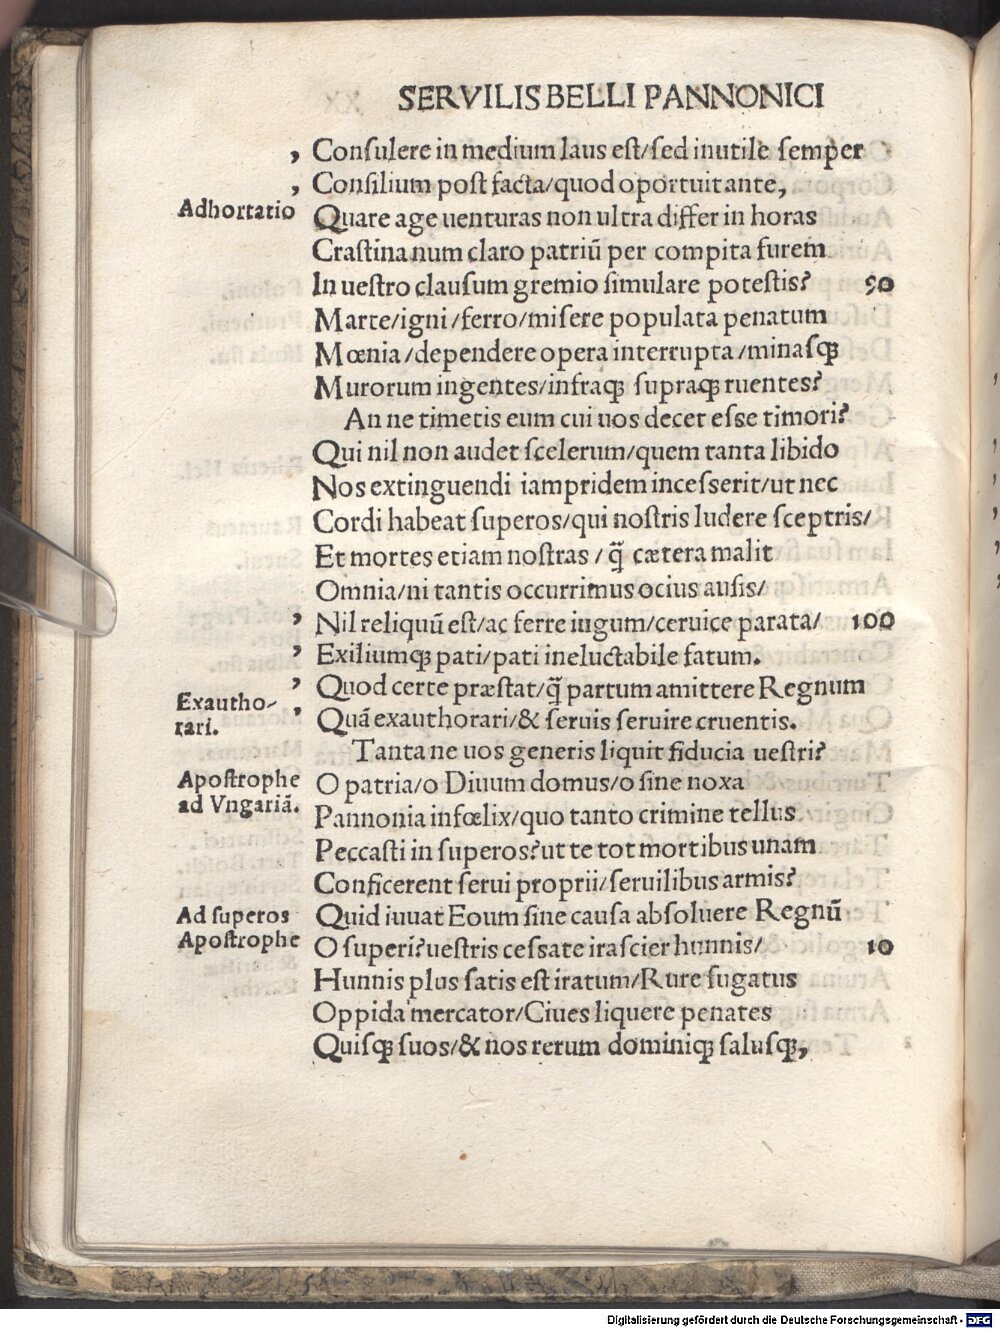 SERVILIS BELLI PANNONICI
, Conſulere in medium laus eſt/ſed inutile ſemper
, Conſilium poſt facta/quod oportuit ante,
Adhortatio
Quare age uenturas non ultra differ in horas
Craſtina num claro patriū per compita furem
In ueſtro clauſum gremio ſimulare poteſtis? 90
Marte/igni/ferro/miſere populata penatum
Mœnia/dependere opera interrupta/minaſqꝫ
Murorum ingentes/infraqꝫ ſupraqꝫ ruentes?
An ne timetis eum cui uos decet eſſe timori?
Qui nil non audet ſcelerum/quem tanta libido
Nos extinguendi iampridem inceſſerit/ut nec
Cordi habeat ſuperos/qui noſtris ludere ſceptris/
Et mortes etiam noſtras/q̄ cætera malit
Omnia/ni tantis occurrimus ocius auſis/
, Nil reliquū eſt/ac ferre iugum/ceruice parata/ 100
, Exiliumqꝫ pati/pati ineluctabile fatum.
, Quod certe præſtat/q̄ partum amittere Regnum
Exautho-
rari.
, Quā exauthorari/& ſeruis ſeruire cruentis.
Tanta ne uos generis liquit fiducia ueſtri?
Apoſtrophe
ad Vngariā.
O patria/o Diuum domus/o ſine noxa
Pannonia infœlix/quo tanto crimine tellus
Peccaſti in ſuperos?ut te tot mortibus unam
Conficerent ſerui proprii/ſeruilibus armis?
Ad ſuperos
Apoſtrophe
Quid iuuat Eoum ſine cauſa abſoluere Regnū
O ſuperi?ueſtris ceſſate iraſcier hunnis/ 10
Hunnis plus ſatis eſt iratum/Rure fugatus
Oppida mercator/Ciues liquere penates
Quiſqꝫ ſuos/& nos rerum dominiqꝫ ſaluſqꝫ,
Digitalisierung gefördert durch die Deutsche Forschungsgemeinschaft - DFG